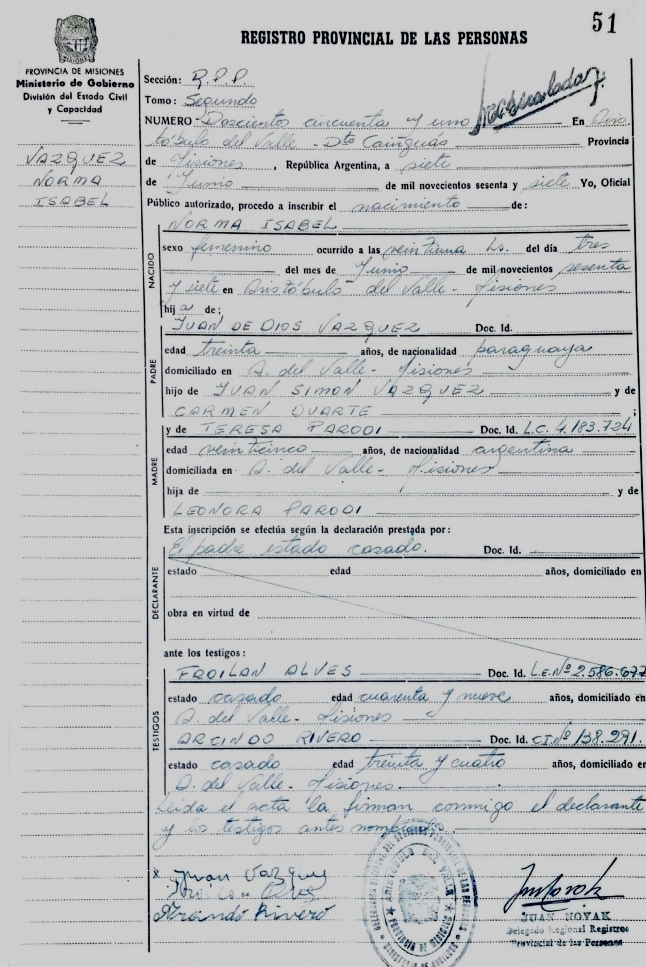 51
REGISTRO PROVINCIAL DE LAS PERSONAS
PROVINCIA DE MISIONES
Ministerio de Gobierno
División del Estado Civil
y Capacidad
VAZQUEZ
NORMA
ISABEL
Sección: R.P.P.
Tomo: Segundo
NUMERO Doscientos cincuenta y uno En Aris
tóbulo del Valle - Dto Cainguás Provincia
de Misiones, República Argentina, a siete
de Junio de mil novecientos sesenta y siete Yo, Oficial
Público autorizado, procedo a inscribir el nacimiento de:
NORMA ISABEL
NACIDO
sexo femenino ocurrido a las veintiuna hs. del día tres
del mes de Junio de mil novecientos sesenta
y siete en Aristóbulo del Valle - Misiones
hija de;
PADRE
JUAN DE DIOS VAZQUEZ Doc. Id.
edad treinta años, de nacionalidad paraguaya
domiciliado en A. del Valle - Misiones
hijo de JUAN SIMON VAZQUEZ y de
CARMEN DUARTE ;
MADRE
y de TERESA PARODI Doc. Id. L.C. 4.183.724
edad veinticinco años, de nacionalidad argentina
domiciliada en A. del Valle - Misiones
hija de y de
LEONORA PARODI
Esta inscripción se efectúa según la declaración prestada por:
DECLARANTE
El padre estado casado. Doc. Id.
estado edad años, domiciliado en
obra en virtud de
ante los testigos:
TESTIGOS
FROILAN ALVES Doc. Id. L.E.Nº 2.586.677
estado casado edad cuarenta y nueve años, domiciliado en
A. del Valle - Misiones
ARCINDO RIVERO Doc. Id. CI.Nº 138.291.
estado casado edad treinta y cuatro años, domiciliado en
A. del Valle - Misiones
Leída el acta la firman conmigo el declarante
y los testigos antes nombrados
x Juan Vazquez
Froilan Alves
Arcindo Rivero
ARISTOBULO DEL VALLE
PROVINCIA DE MISIONES
JUAN NOVAK
Delegado Regional Registro
Provincial de las Personas